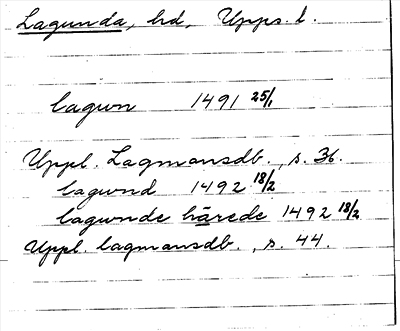 Lagunda, hd, Upps. l.
lagwn 1491 25/1
Uppl. Lagmansdb., s. 36.
lagwnd 1492 18/2
lagwnde härede 1492 18/2
Uppl. lagmansdb., s. 44.